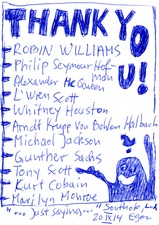 THANK YOU!
ROBIN WILLIAMS
Philip Seymour Hoffman
Alexander McQueen
L'Wren Scott
Whitney Houston
Arndt Krupp Von Bohlen Halbach
Michael Jackson
Gunther Sachs
Tony Scott
Kurt Cobain
Marilyn Monroe
"...Just saying..."
20 IX 14 Eger